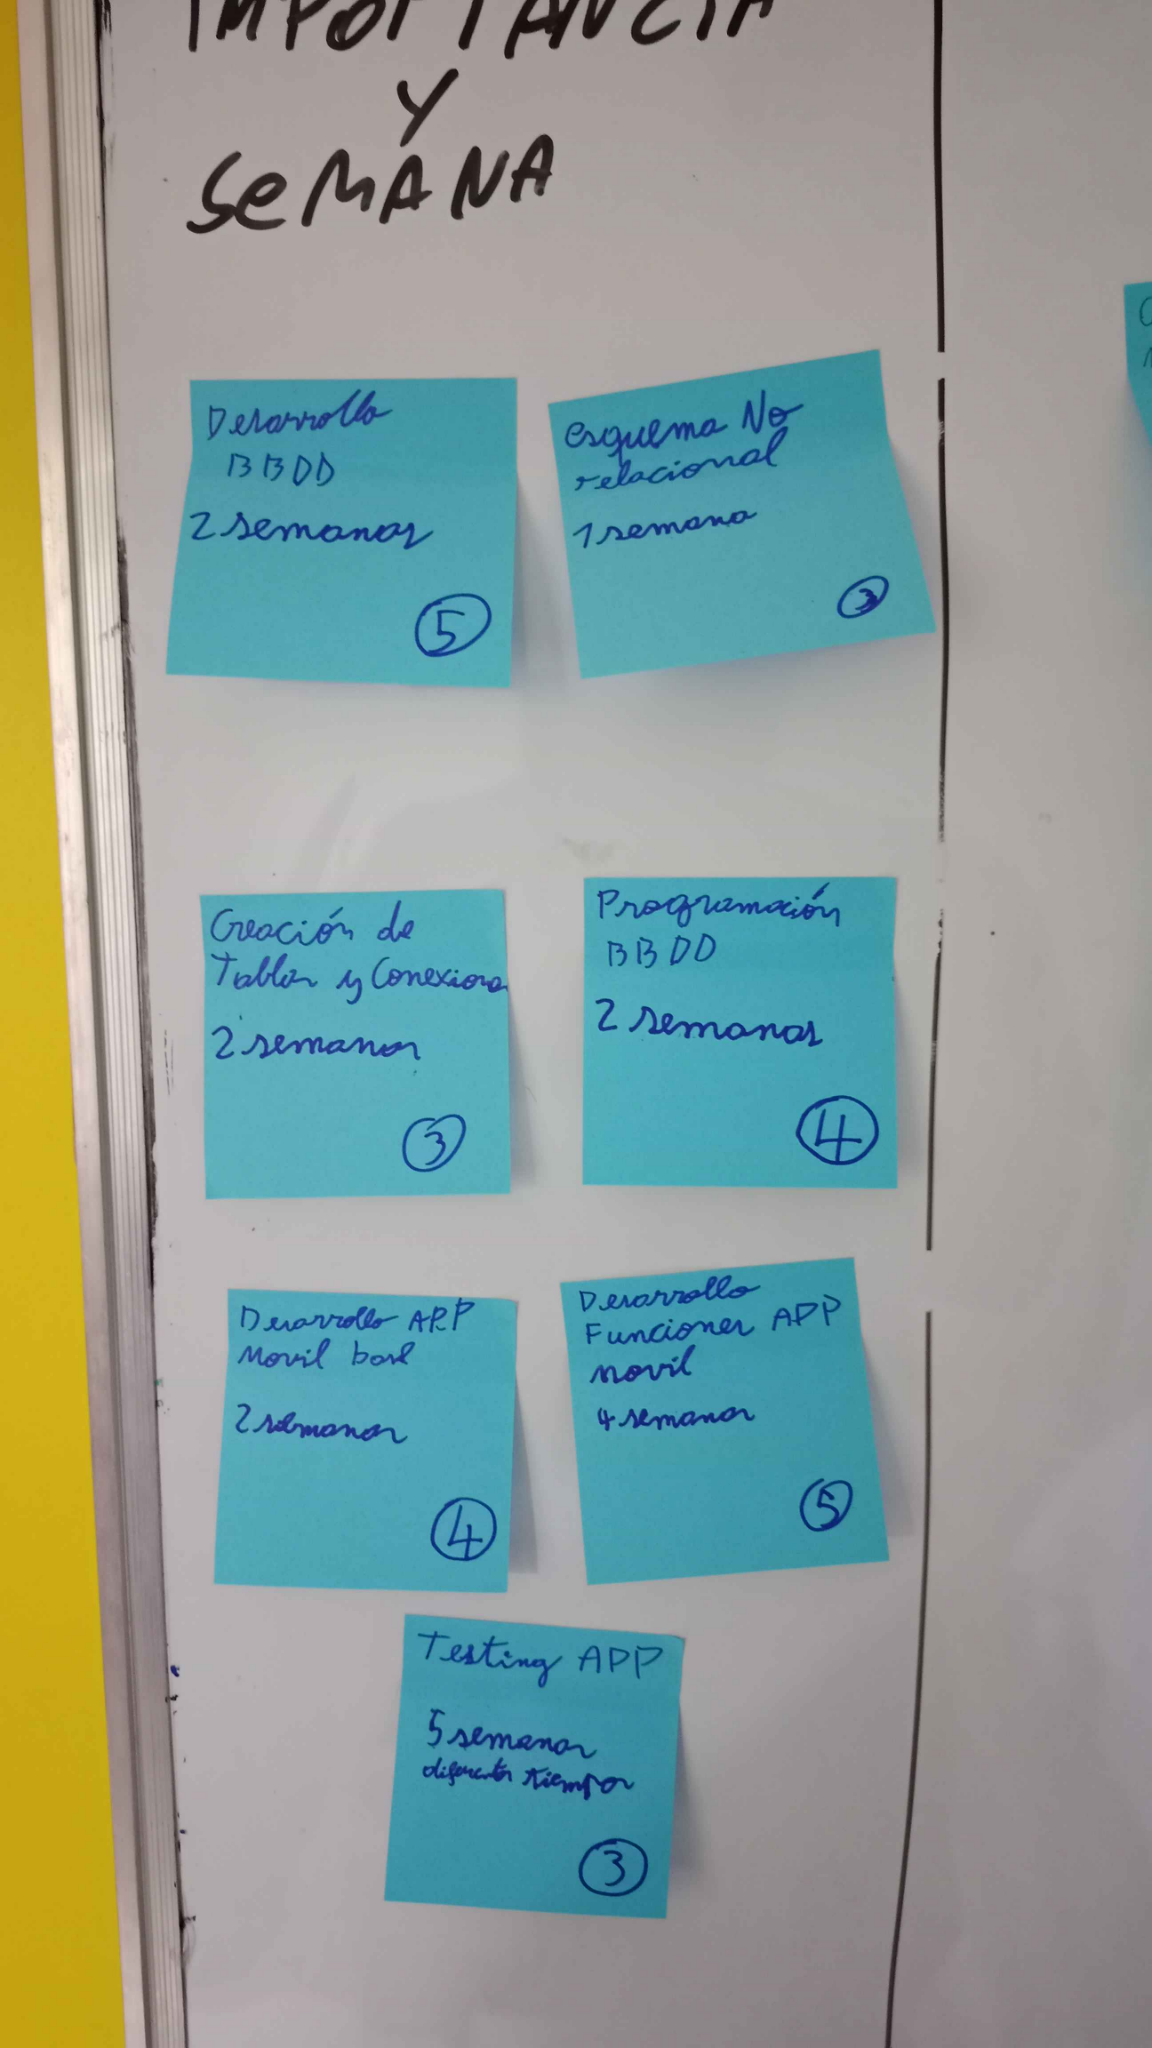 IMPORTANCIA
Y
SEMANA
Desarrollo
BBDD
2 semanas
5
esquema No
relacional
1 semana
3
Creación de
Tablas y Conexiones
2 semanas
3
Programación
BBDD
2 semanas
4
Desarrollo APP
Movil base
2 semanas
4
Desarrollo
Funciones APP
movil
4 semanas
5
Testing APP
5 semanas
diferentes tiempos
3